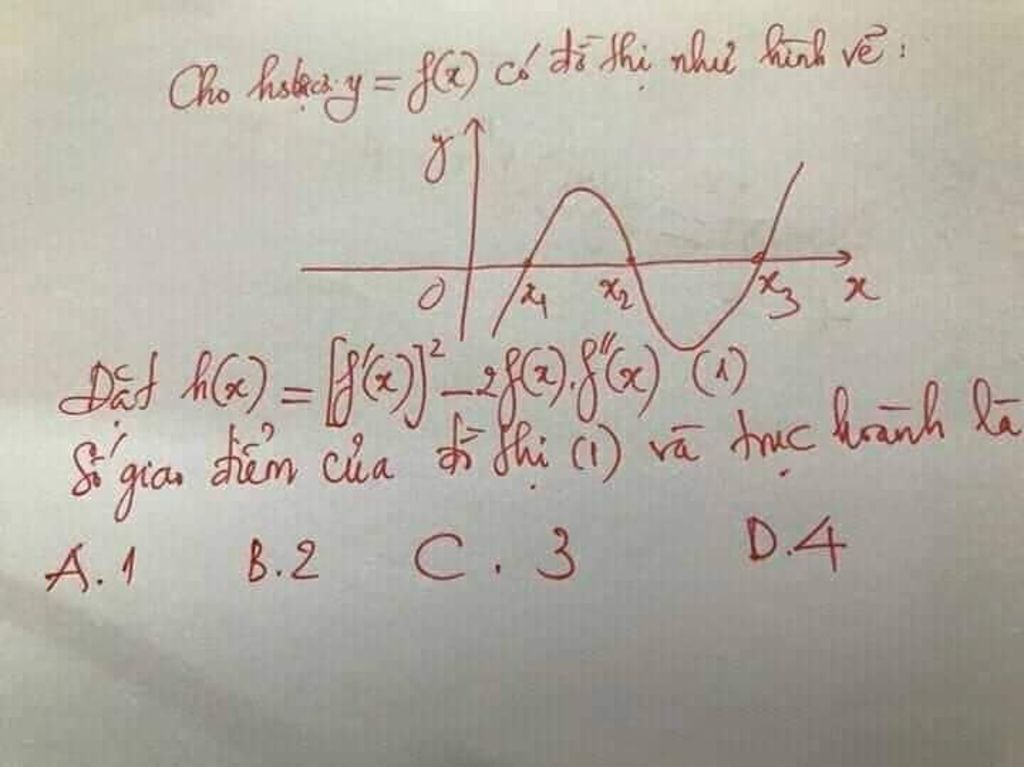 Cho hsbậc3 y = f(x) có đồ thị như hình vẽ:
y
O x₁ x₂ x₃ x
Đặt h(x) = [f'(x)]² - 2f(x).f''(x) (1)
Số giao điểm của đồ thị (1) và trục hoành là
A. 1 B. 2 C. 3 D. 4